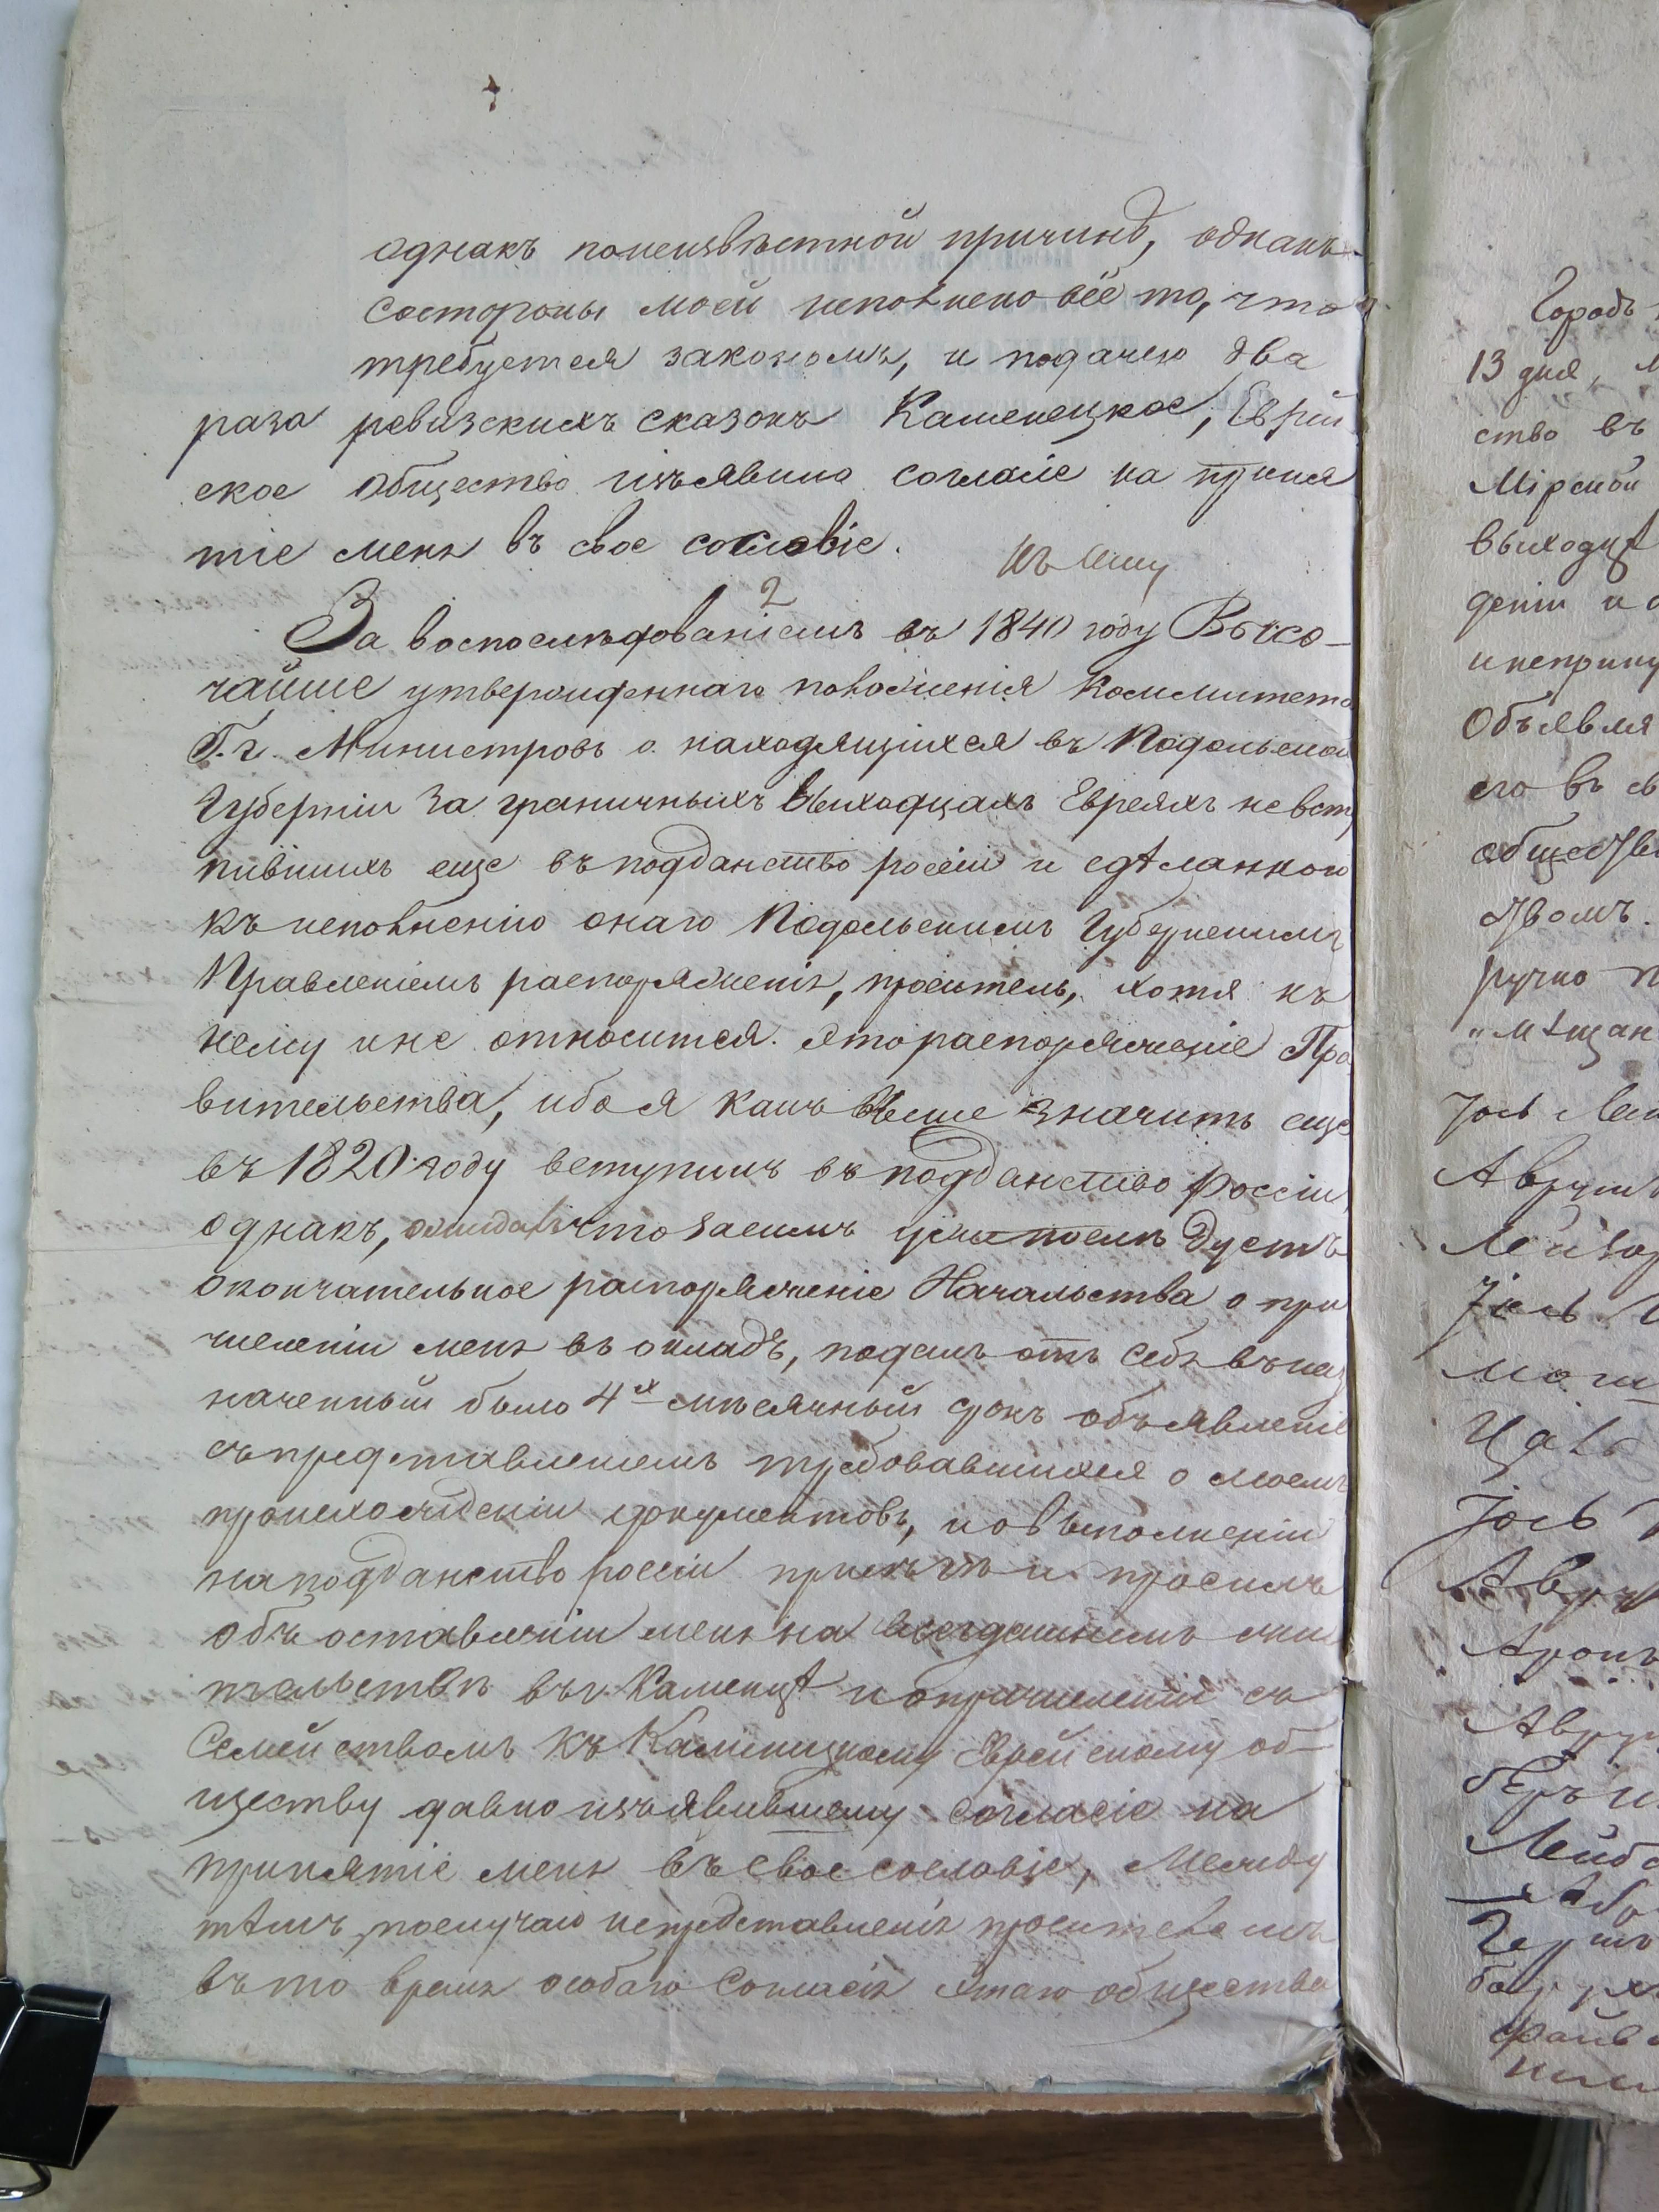 однакъ понеизвѣстной причинѣ, однакъ
состороны моей исполнено всё то, что
требуется закономъ, и подачею два
раза ревизскихъ сказокъ Каменецкое, Еврей
ское общество изъявило согласіе на приня
тіе меня въ свое сословіе.
къ сему
2
За воспослѣдованіемъ въ 1840 году Высо-
чайше утвержденнаго положенія Коммитета
Г.г. Министровъ о находящихся въ Подольской
Губерніи За граничныхъ выходцахъ Евреяхъ невсту
пившихъ еще въ подданство россіи и сдѣланного
къ исполненію онаго Подольскимъ Губернскимъ
Правленіемъ распоряженія, проситель, хотя къ
нему и не относится это распоряженіе Пра
вительства, ибо я какъ выше значитъ еще
въ 1820 году вступилъ въ подданство россіи,
однакъ, ожидая что засимъ
окончательное распоряженіе Начальства о при
численіи меня въ окладъ, подалъ отъ себя въ наз
наченный было 4х мѣсячный срокъ объявленіе
съ представленіемъ требовавшихся о моемъ
происхожденіи документовъ, и о выполненіи
на подданство россіи присяги и просилъ
объ оставленіи меня на всегдашнемъ жи
тельствѣ въ г. Каменцѣ и о причисленіи съ
Семействомъ къ Каменецкому Еврейскому об-
ществу давно изъявившему согласіе на
принятіе меня въ свое сословіе, Между
тѣмъ, по случаю непредставленія просителемъ
въ то время особаго Согласія этаго общества
Городъ
13 дня,
ство въ
Мірской
выходцѣ
деніи и о
Объявля
его въ св
обществ
ручно
"мѣщан
Іось
Лейзор
Іось
Іось
Аронъ